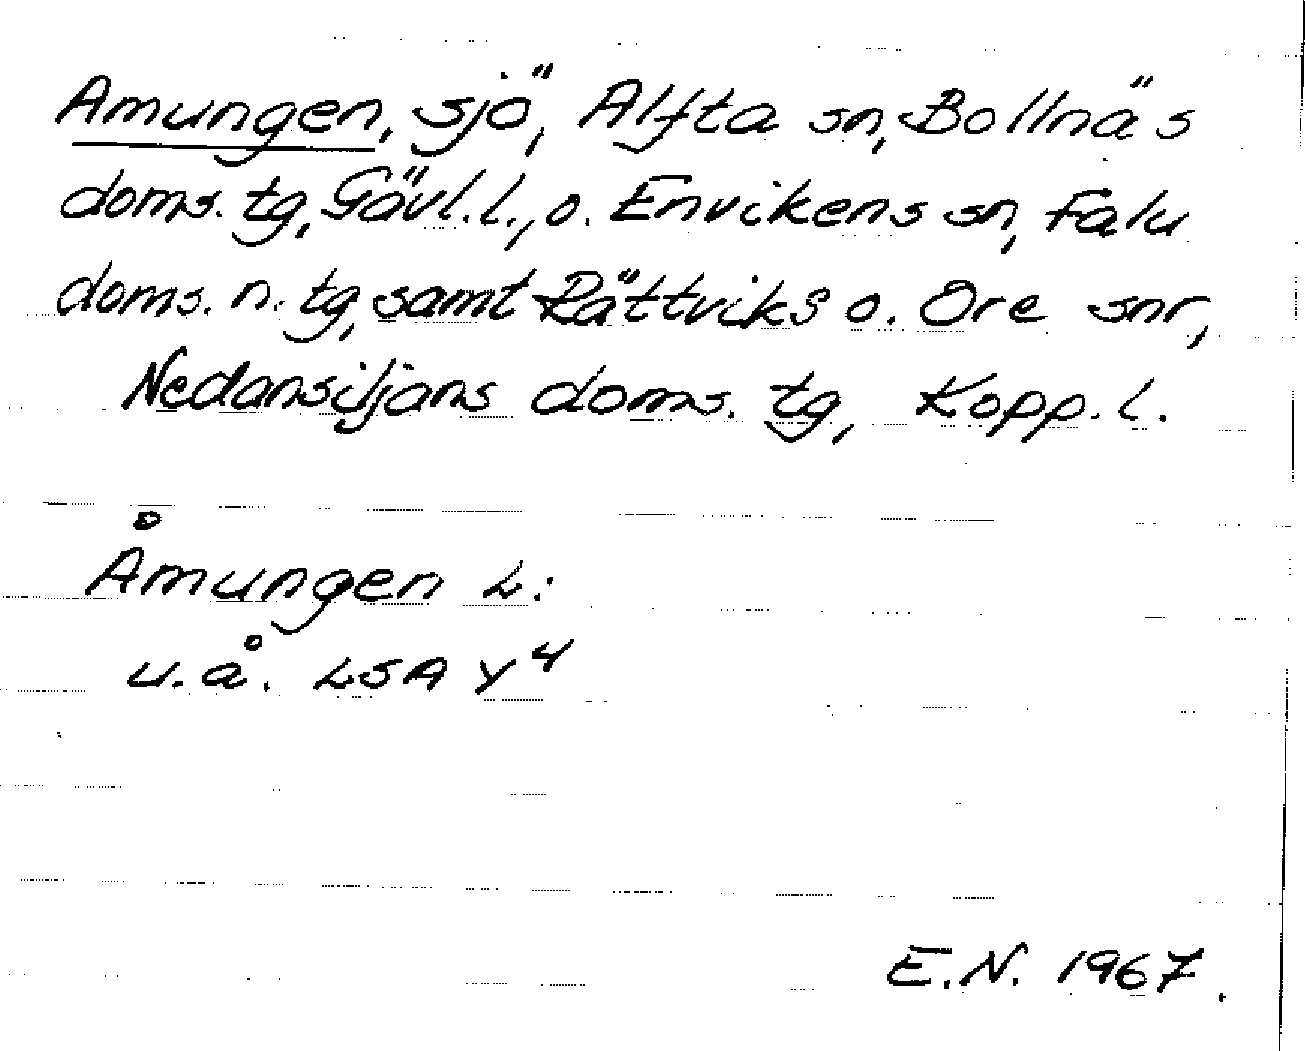 Amungen, sjö, Alfta sn, Bollnäs
doms. tg, Gävl. l., o. Envikens sn, Falu
doms. n. tg, samt Rättviks o. Ore snr,
Nedansiljans doms. tg, Kopp. l.
Åmungen L:
u. å. LSA Y4
E.N. 1967.